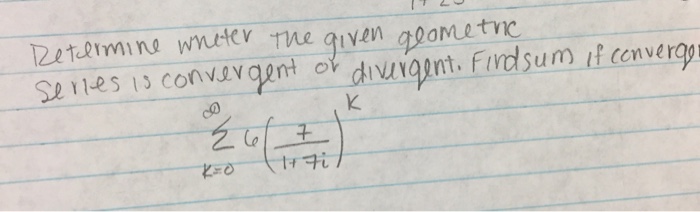 Determine wheter the given geometric
series is convergent or divergent. Find sum if converge
∞ K
Σ 6 ( 7 / 1+7i )
K=0